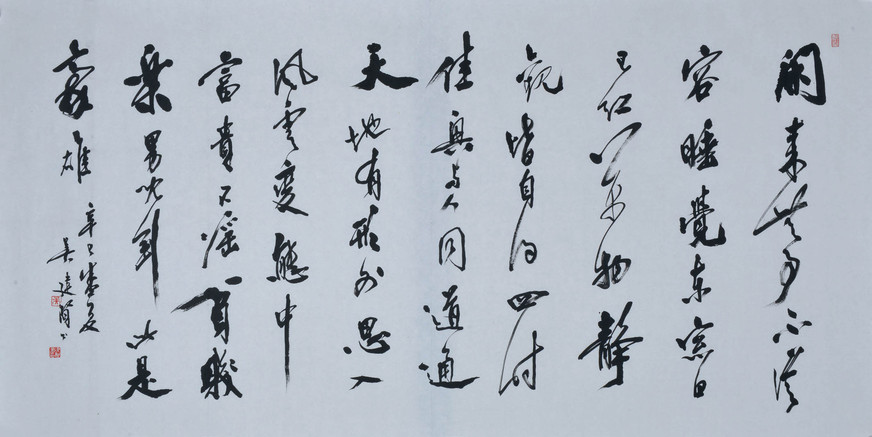 闲来無事不從
容睡覺东窗日
已红萬物靜
观皆自得四时
佳興与人同道通
天地有形外思入
風雲變態中
富貴不淫貧賤
樂男兒到此是
豪雄
盛夏
吴建